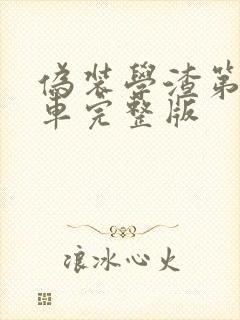 偽裝學渣第
車完整版
浪冰心火